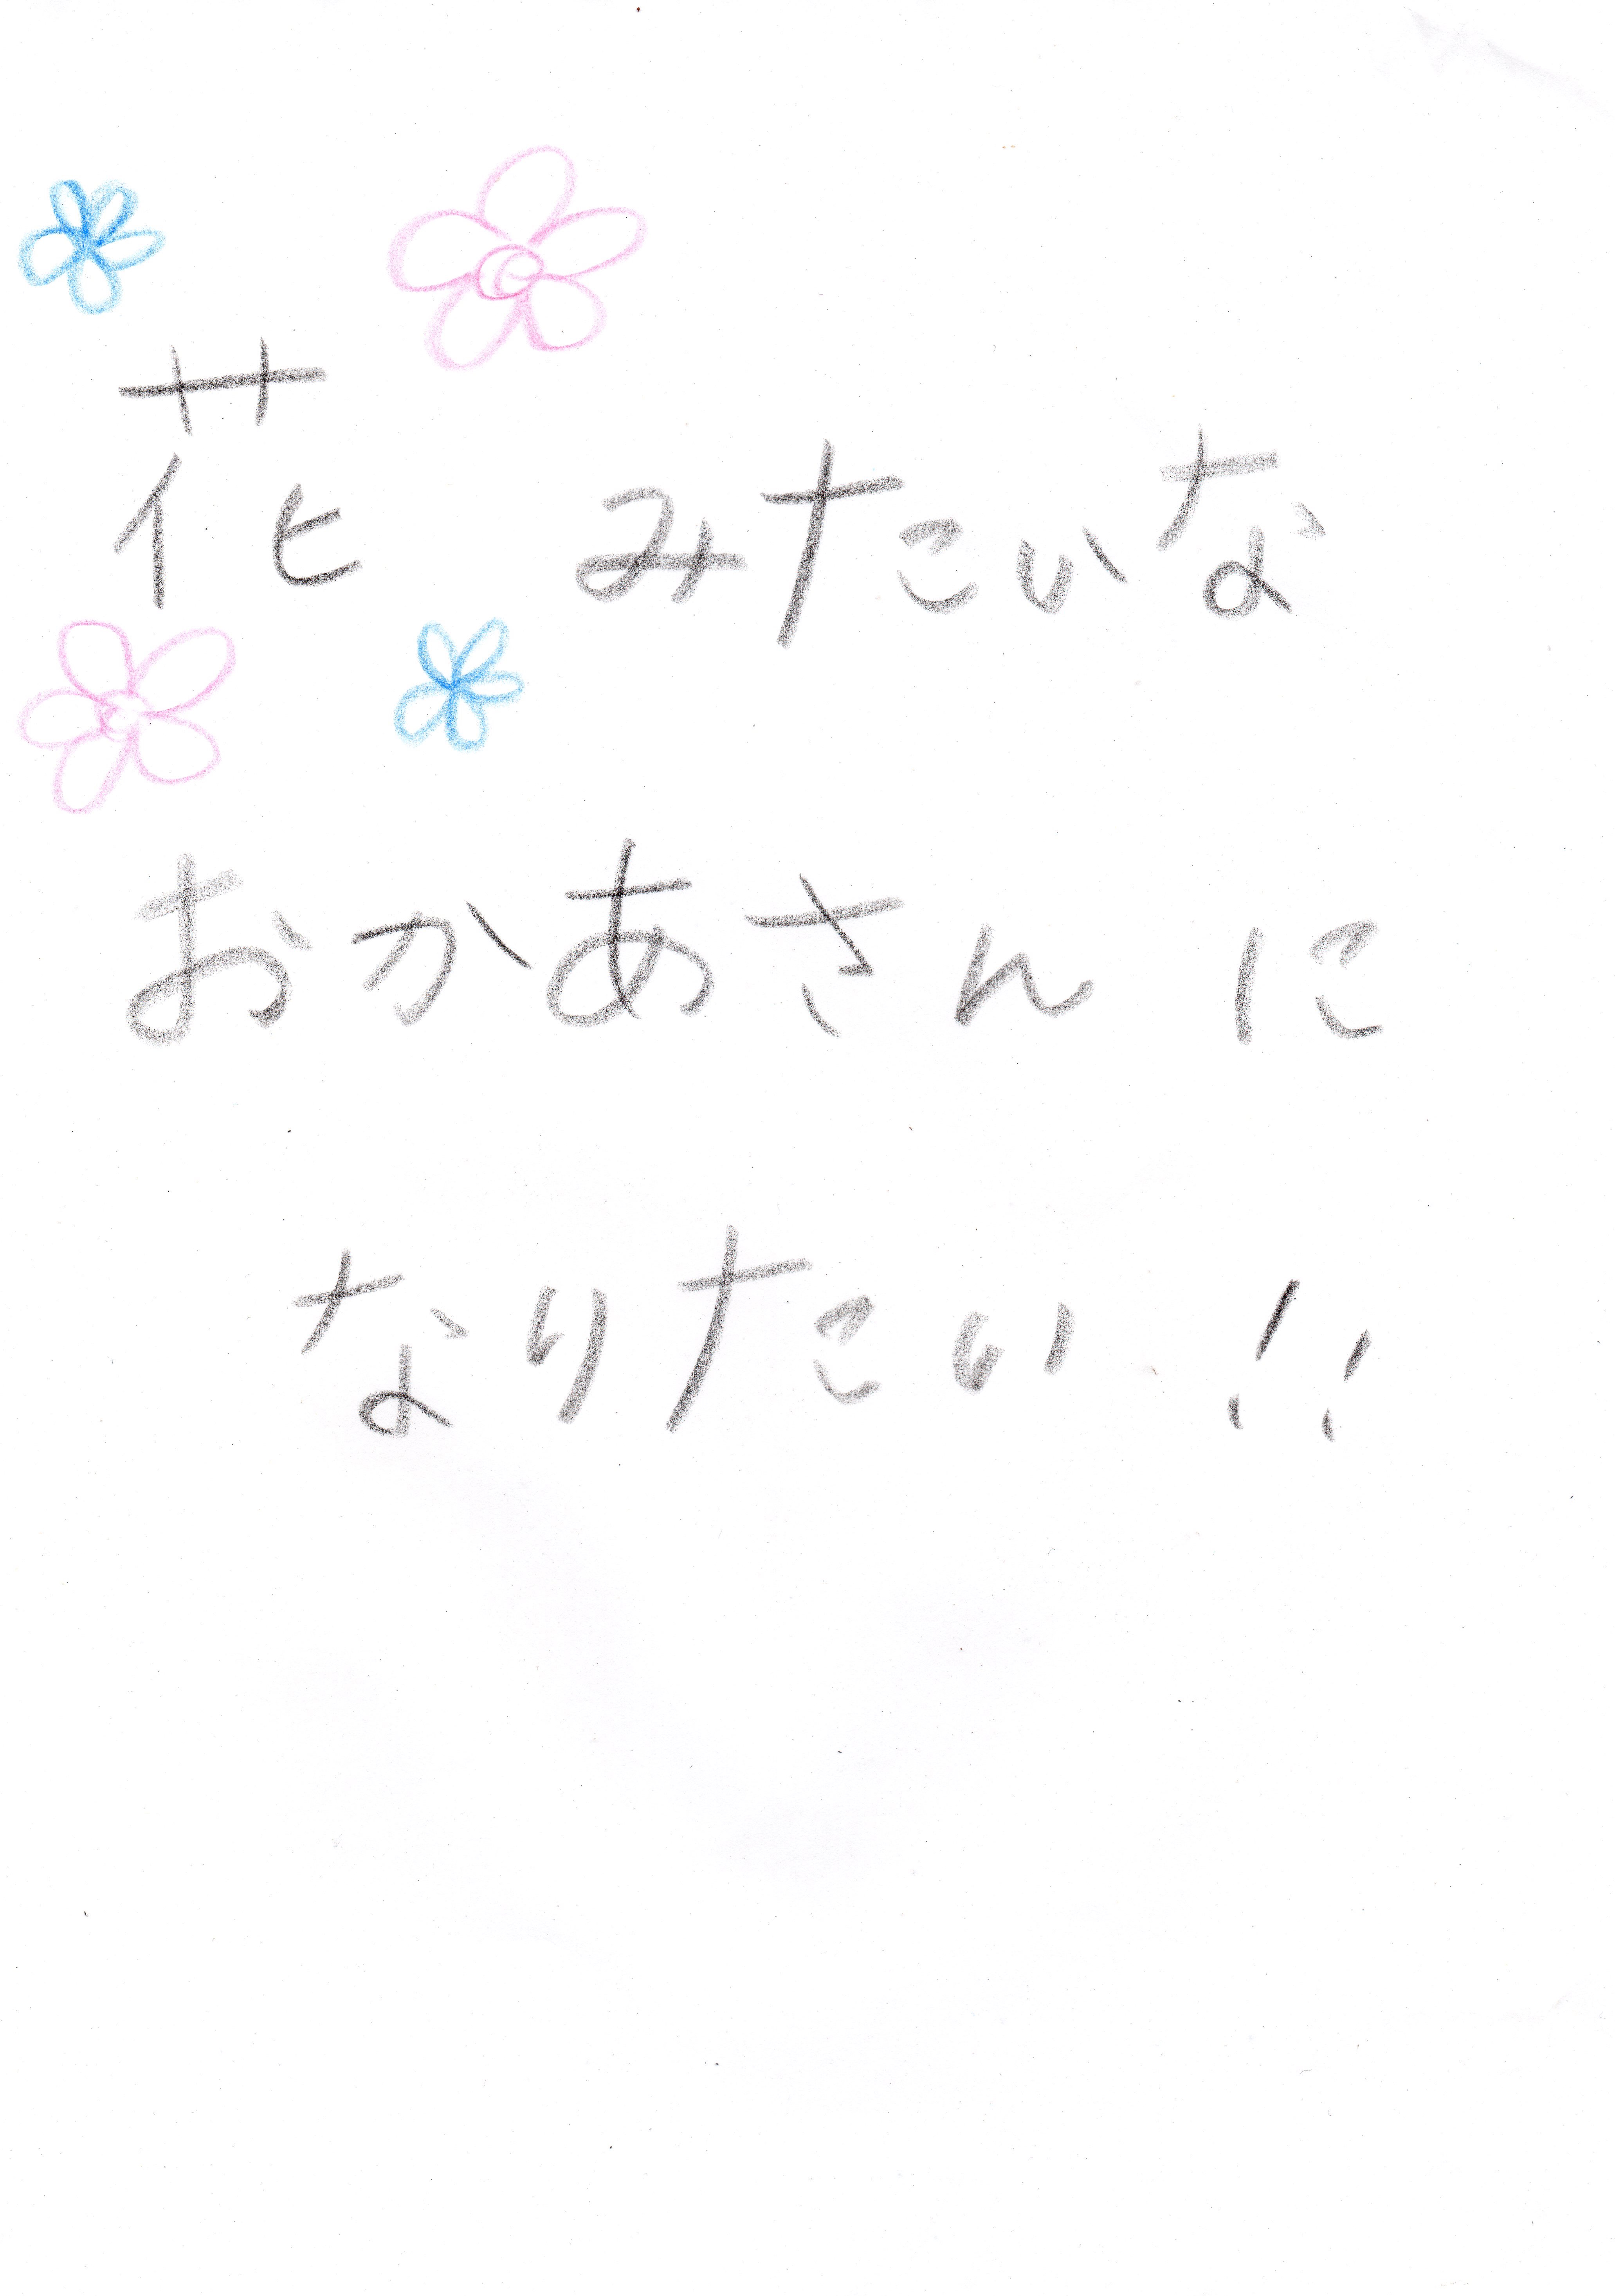 花 みたいな
おかあさん に
なりたい !!